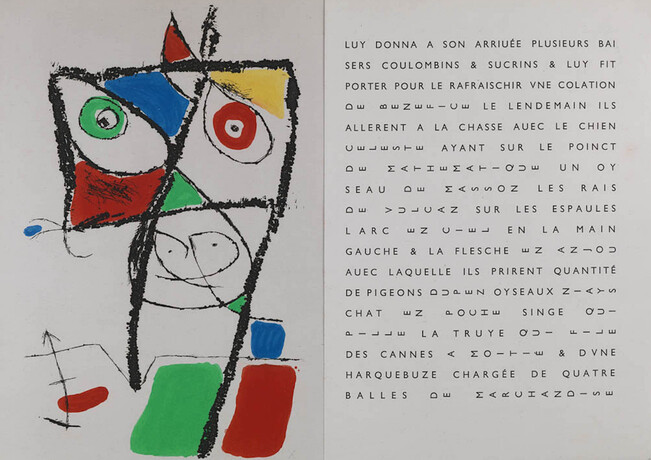 LUY DONNA A SON ARRIUÉE PLUSIEURS BAI
SERS COULOMBINS & SUCRINS & LUY FIT
PORTER POUR LE RAFRAISCHIR VNE COLATION
DE BENEFICE LE LENDEMAIN ILS
ALLERENT A LA CHASSE AUEC LE CHIEN
CELESTE AYANT SUR LE POINCT
DE MATHEMATIQUE UN OY
SEAU DE MASSON LES RAIS
DE VULCAN SUR LES ESPAULES
L'ARC EN CIEL EN LA MAIN
GAUCHE & LA FLESCHE EN ANJOU
AUEC LAQUELLE ILS PRIRENT QUANTITÉ
DE PIGEONS DUPEZ OYSEAUX NIAYS
CHAT EN POCHE SINGE QUI
PILLE LA TRUYE QUI FILE
DES CANNES A MOITIÉ & DVNE
HARQUEBUZE CHARGÉE DE QUATRE
BALLES DE MARCHANDISE